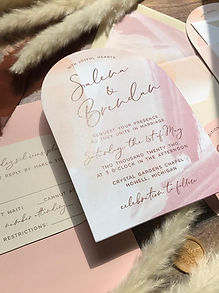 WITH JOYFUL HEARTS
Salena
&
Brendan
REQUEST YOUR PRESENCE
AS THEY UNITE IN MARRIAGE
Saturday, the 1st of May
TWO THOUSAND TWENTY TWO
AT 3 O'CLOCK IN THE AFTERNOON
CRYSTAL GARDENS CHAPEL
HOWELL, MICHIGAN
celebration to follow
REPLY BY MARCH
number attending
RESTRICTIONS: